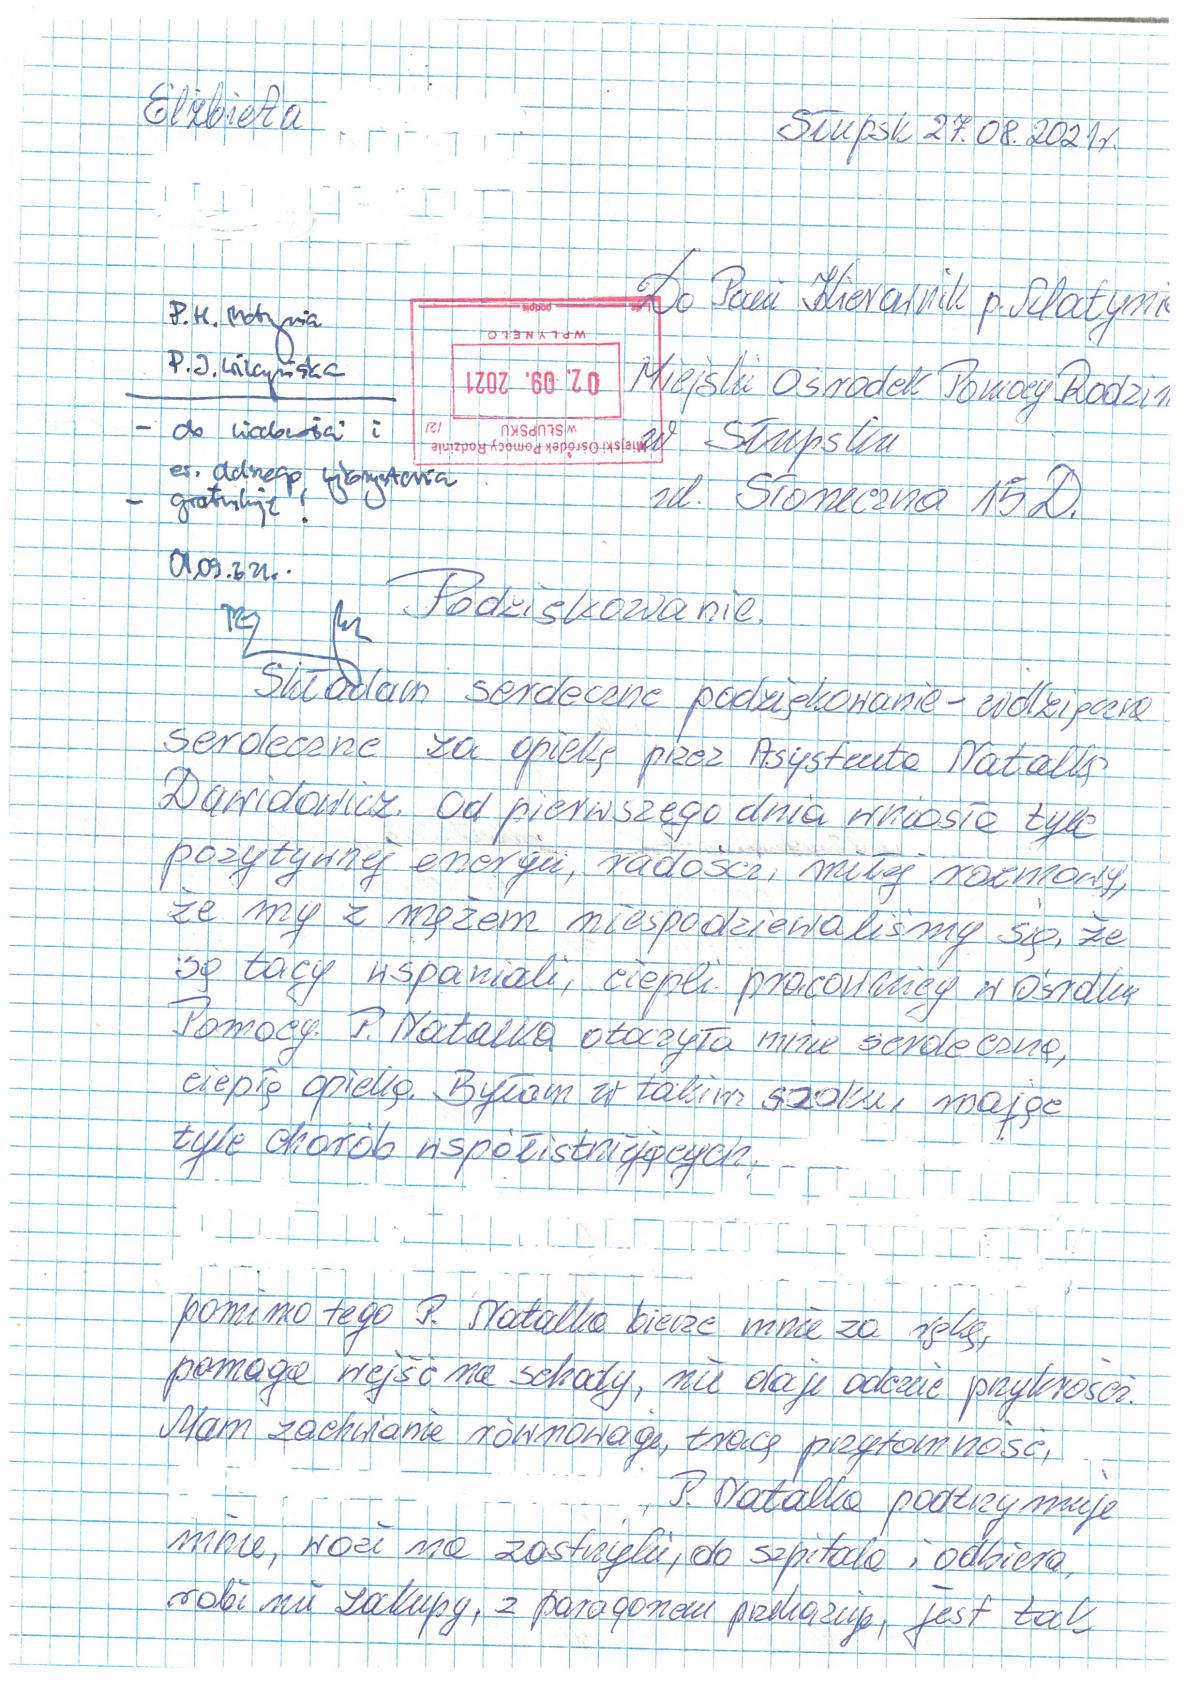 Elżbieta
Słupsk 27.08.2021r.
Do Pani Kierownik p. Matynia
Miejski Ośrodek Pomocy Rodzin
w Słupsku
ul. Słoneczna 15D.
P.H. Matynia
P.J. Wilczyńska
- do wiadomości i
ew. dalszego wykorzystania
- gratuluję!
01.09.2021.
Miejski Ośrodek Pomocy Rodzinie
W SŁUPSKU
02. 09. 2021
WPŁYNĘŁO
podpis
Podziękowanie.
Składam serdeczne podziękowanie - wdzięczna
serdeczne za opiekę przez Asystenta Natalkę
Dawidowicz. Od pierwszego dnia wniosła tyle
pozytywnej energii, radości, miłej rozmowy,
że my z mężem niespodziewaliśmy się, że
są tacy wspaniali, ciepli pracownicy w Ośrodku
Pomocy. P. Natalka otoczyła mnie serdeczną,
ciepłą opieką. Byłam w takim szoku, mając
tyle chorób współistniejących.
pomimo tego P. Natalka bierze mnie za rękę,
pomaga wejść na schody, nie daje odczuć przykrości.
Mam zachwianie równowagi, tracę przytomność,
P. Natalka podtrzymuje
mnie, wozi na zastrzyki, do szpitala i odbiera,
robi mi zakupy, z paragonem przekazuje, jest tak